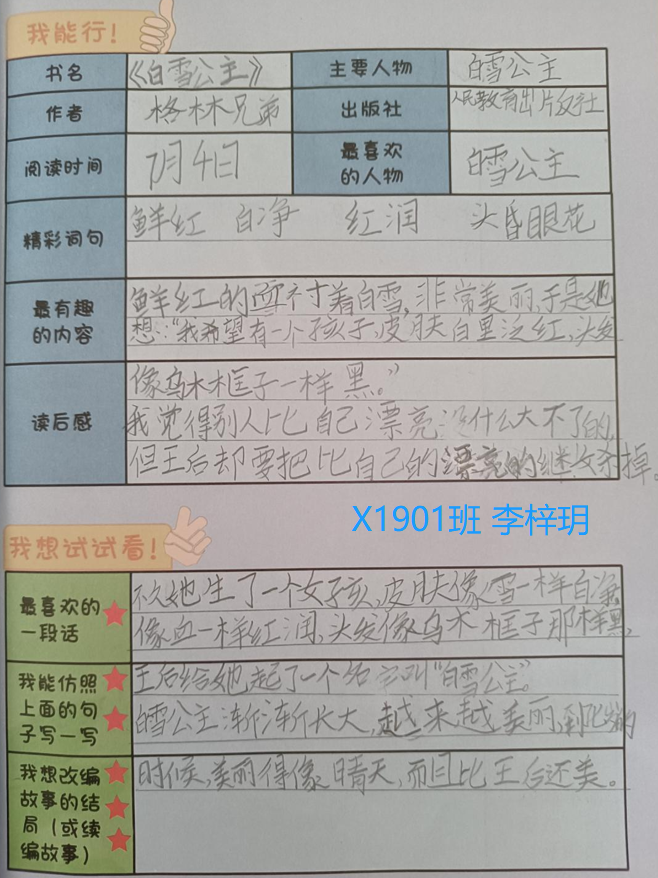 我能行!
书名 《白雪公主》 主要人物 白雪公主
作者 格林兄弟 出版社 人民教育出版社
阅读时间 7月4日 最喜欢的人物 白雪公主
精彩词句 鲜红 白净 红润 头昏眼花
最有趣的内容 鲜红的血衬着白雪,非常美丽,于是她
想:“我希望有一个孩子,皮肤白里泛红,头发
像乌木框子一样黑。”
读后感 我觉得别人比自己漂亮没什么大不了的,
但王后却要把比自己的漂亮的继女杀掉。
X1901班 李梓玥
我想试试看!
最喜欢的一段话 不久她生了一个女孩,皮肤像雪一样白净
像血一样红润,头发像乌木框子那样黑,
我能仿照上面的句子写一写 王后给她起了一个名字叫“白雪公主”。
白雪公主渐渐长大,越来越美丽,到七岁的
我想改编故事的结局(或续编故事) 时候,美丽得像晴天,而且比王后还美。